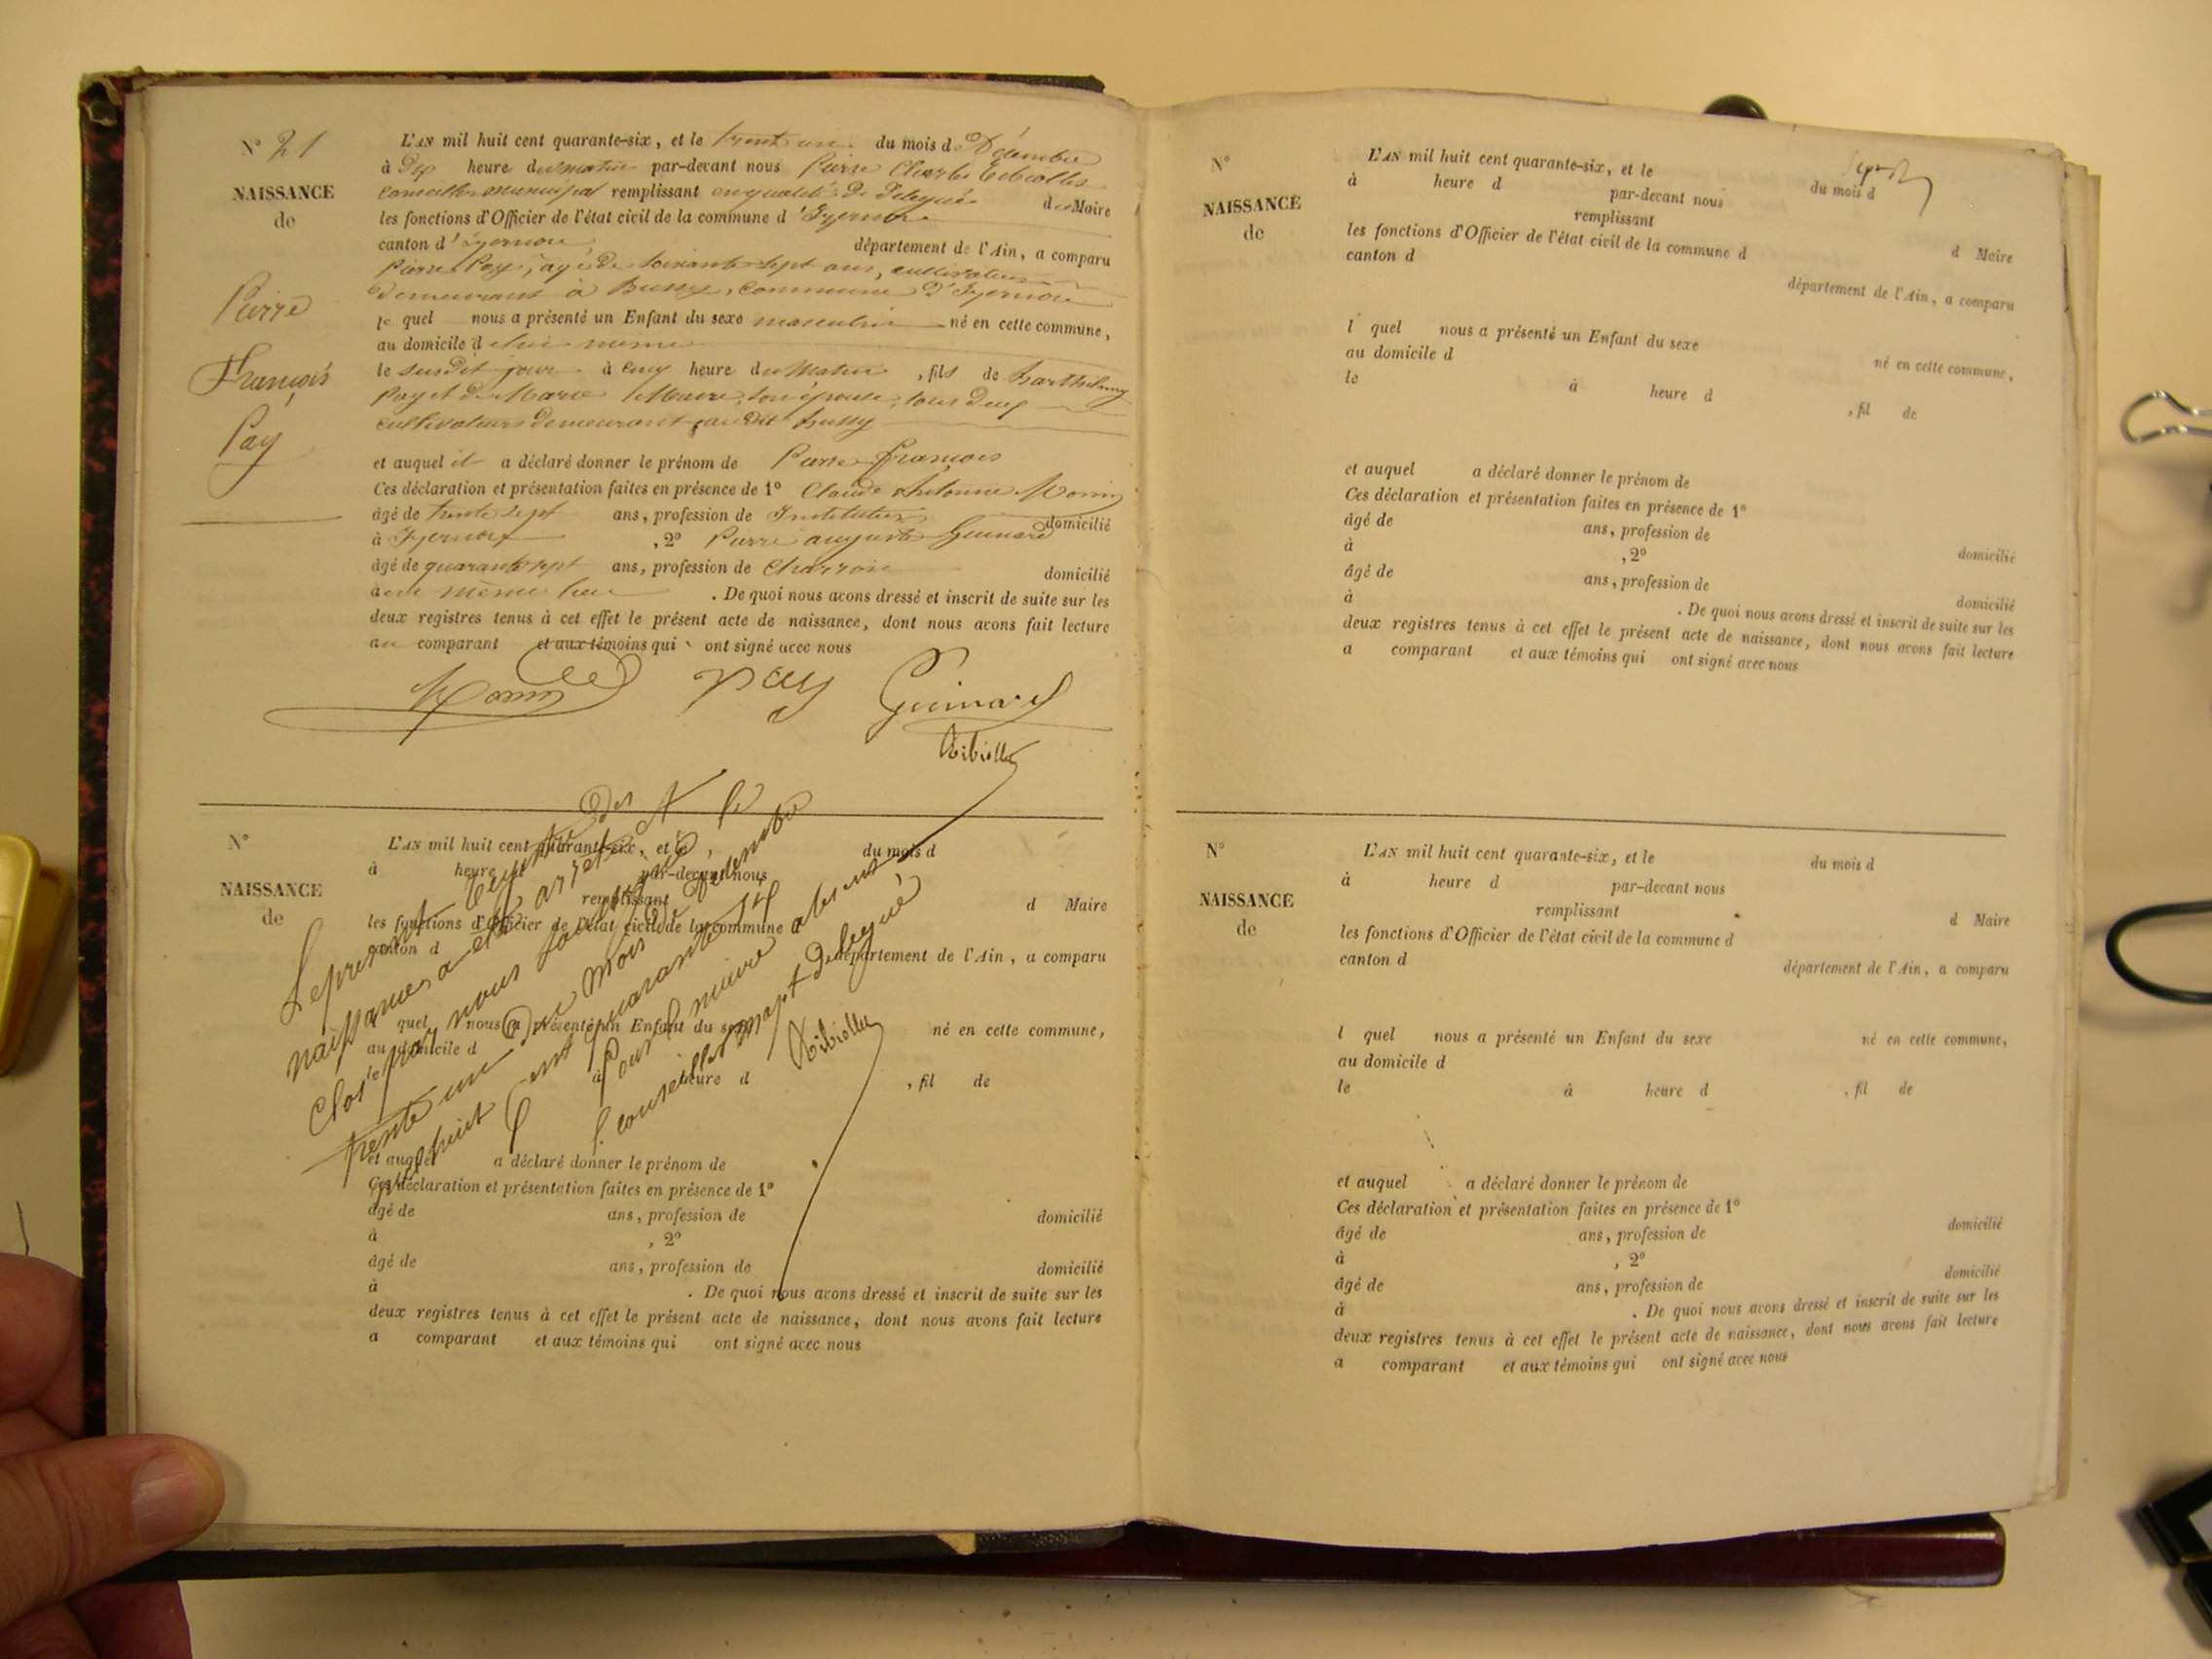 N° 21
NAISSANCE
de
Pierre
François
Pay
L'AN mil huit cent quarante-six, et le trent un du mois d Décembre
à Dix heure du matin par-devant nous Pierre Charles
Conseiller municipal remplissant en qualité de Délegué d Maire
les fonctions d'Officier de l'état civil de la commune d'Izernore
canton d'Izernore département de l'Ain, a comparu
Pierre Pay, agé de soixante-sept ans, cultivateur
demeurant à Bussy, commune d'Izernore
le quel nous a présenté un Enfant du sexe masculin né en cette commune,
au domicile de lui meme
le susdit jour à cinq heure du Matin, fils de Barthélemy
Pay et de Marie son épouse, tous deux
cultivateurs demeurant audit Bussy
et auquel il a déclaré donner le prénom de Pierre François
Ces déclaration et présentation faites en présence de 1° Claude Antoine Morin
âgé de trente sept ans, profession de Instituteur domicilié
à Izernore, 2° Pierre auguste Guinard
âgé de quarante sept ans, profession de Charron domicilié
au même lieu. De quoi nous avons dressé et inscrit de suite sur les
deux registres tenus à cet effet le présent acte de naissance, dont nous avons fait lecture
au comparant et aux témoins qui ont signé avec nous
Morin pay Guinard
N°
NAISSANCE
de
L'AN mil huit cent quarante-six, et le du mois d
à heure d par-devant nous
remplissant d Maire
les fonctions d'Officier de l'état civil de la commune d
canton d département de l'Ain, a comparu
l quel nous a présenté un Enfant du sexe né en cette commune,
au domicile d
à heure d , fil de
et auquel a déclaré donner le prénom de
Ces déclaration et présentation faites en présence de 1°
âgé de ans, profession de domicilié
à , 2°
âgé de ans, profession de domicilié
à . De quoi nous avons dressé et inscrit de suite sur les
deux registres tenus à cet effet le présent acte de naissance, dont nous avons fait lecture
a comparant et aux témoins qui ont signé avec nous
Le présent des
naissances a été arreté et
Clos par nous le
trente un du mois de decembre
mil huit Cent quarante six
Pour le maire absent
l. conseiller mapt Delegué
N°
NAISSANCE
de
L'AN mil huit cent quarante-six, et le du mois d
à heure d par-devant nous
remplissant d Maire
les fonctions d'Officier de l'état civil de la commune d
canton d département de l'Ain, a comparu
l quel nous a présenté un Enfant du sexe né en cette commune,
au domicile d
le à heure d , fil de
et auquel a déclaré donner le prénom de
Ces déclaration et présentation faites en présence de 1°
âgé de ans, profession de domicilié
à , 2°
âgé de ans, profession de domicilié
à . De quoi nous avons dressé et inscrit de suite sur les
deux registres tenus à cet effet le présent acte de naissance, dont nous avons fait lecture
a comparant et aux témoins qui ont signé avec nous
N°
NAISSANCE
de
L'AN mil huit cent quarante-six, et le du mois d
à heure d par-devant nous
remplissant d Maire
les fonctions d'Officier de l'état civil de la commune d
canton d département de l'Ain, a comparu
l quel nous a présenté un Enfant du sexe né en cette commune,
au domicile d
le à heure d , fil de
et auquel a déclaré donner le prénom de
Ces déclaration et présentation faites en présence de 1°
âgé de ans, profession de domicilié
à , 2°
âgé de ans, profession de domicilié
à . De quoi nous avons dressé et inscrit de suite sur les
deux registres tenus à cet effet le présent acte de naissance, dont nous avons fait lecture
a comparant et aux témoins qui ont signé avec nous